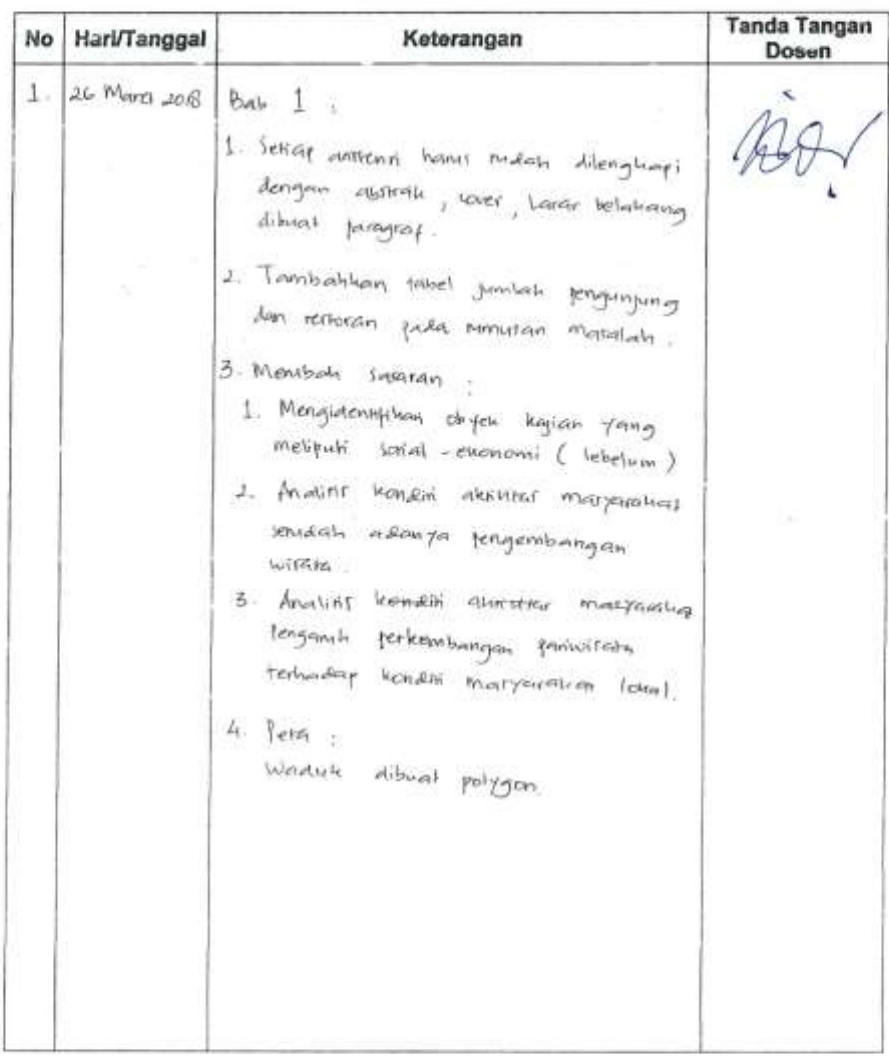 No Hari/Tanggal Keterangan Tanda Tangan Dosen
1. 26 Maret 2018 Bab 1 :
1. Setiap asistensi harus sudah dilengkapi
dengan abstrak, cover, Latar belakang
dibuat paragraf.
2. Tambahkan tabel jumlah pengunjung
dan restoran pada rumusan masalah.
3. Merubah sasaran :
1. Mengidentifikan obyek kajian yang
meliputi sosial - ekonomi (sebelum)
2. Analisis kondisi aktivitas masyarakat
sesudah adanya pengembangan
wisata.
3. Analisis kondisi masyarakat
Pengaruh perkembangan pariwisata
terhadap kondisi masyarakat lokal.
4. Peta :
Waduk dibuat polygon.